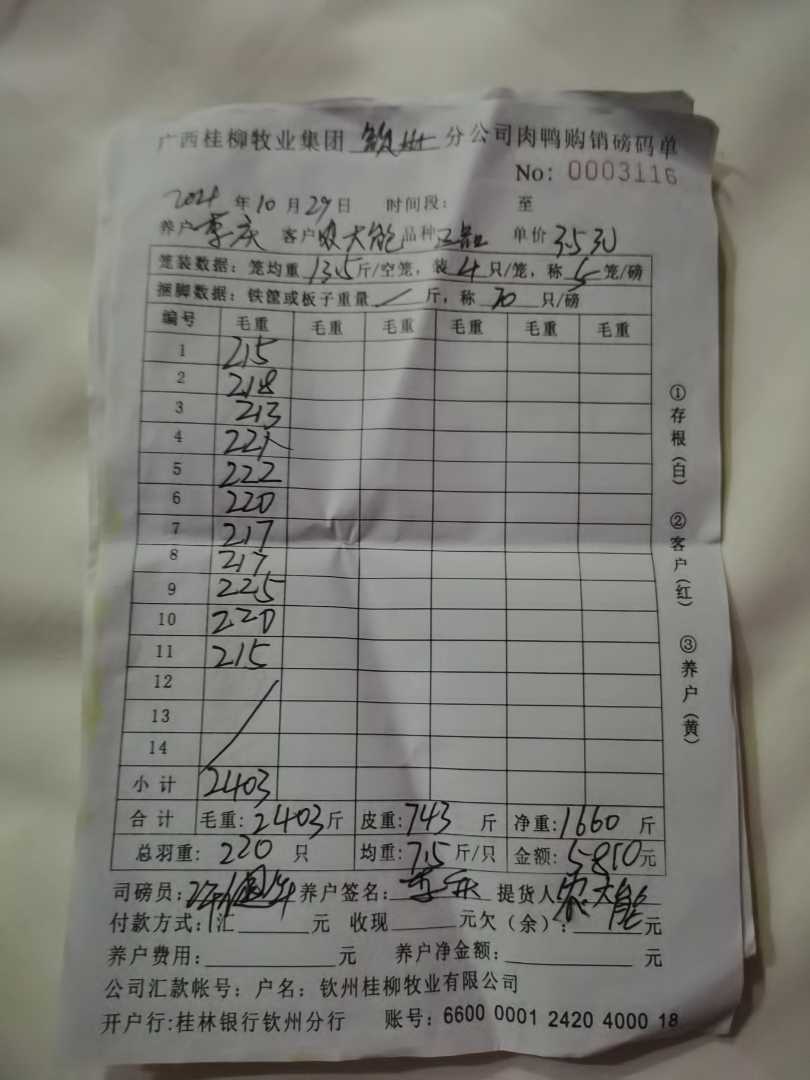 广西桂柳牧业集团 钦州 分公司肉鸭购销磅码单
No: 0003116
2024 年 10 月 29 日 时间段: 至
养户 李庆 客户 大能 品种 单价 3.530
笼装数据: 笼均重 13.5 斤/空笼, 装 4 只/笼, 称 5 笼/磅
捆脚数据: 铁筐或板子重量 / 斤, 称 20 只/磅
编号 毛重 毛重 毛重 毛重 毛重 毛重
1 215
2 218
3 213
4 221
5 222
6 220
7 217
8 217
9 225
10 220
11 215
12
13
14
小计 2403
合计 毛重: 2403 斤 皮重: 743 斤 净重: 1660 斤
总羽重: 220 只 均重: 7.5 斤/只 金额: 5810 元
司磅员: 养户签名: 李庆 提货人 大能
付款方式: 汇 元 收现 元欠(余): 元
养户费用: 元 养户净金额: 元
公司汇款帐号: 户名: 钦州桂柳牧业有限公司
开户行:桂林银行钦州分行 账号: 6600 0001 2420 4000 18
①存根(白) ②客户(红) ③养户(黄)